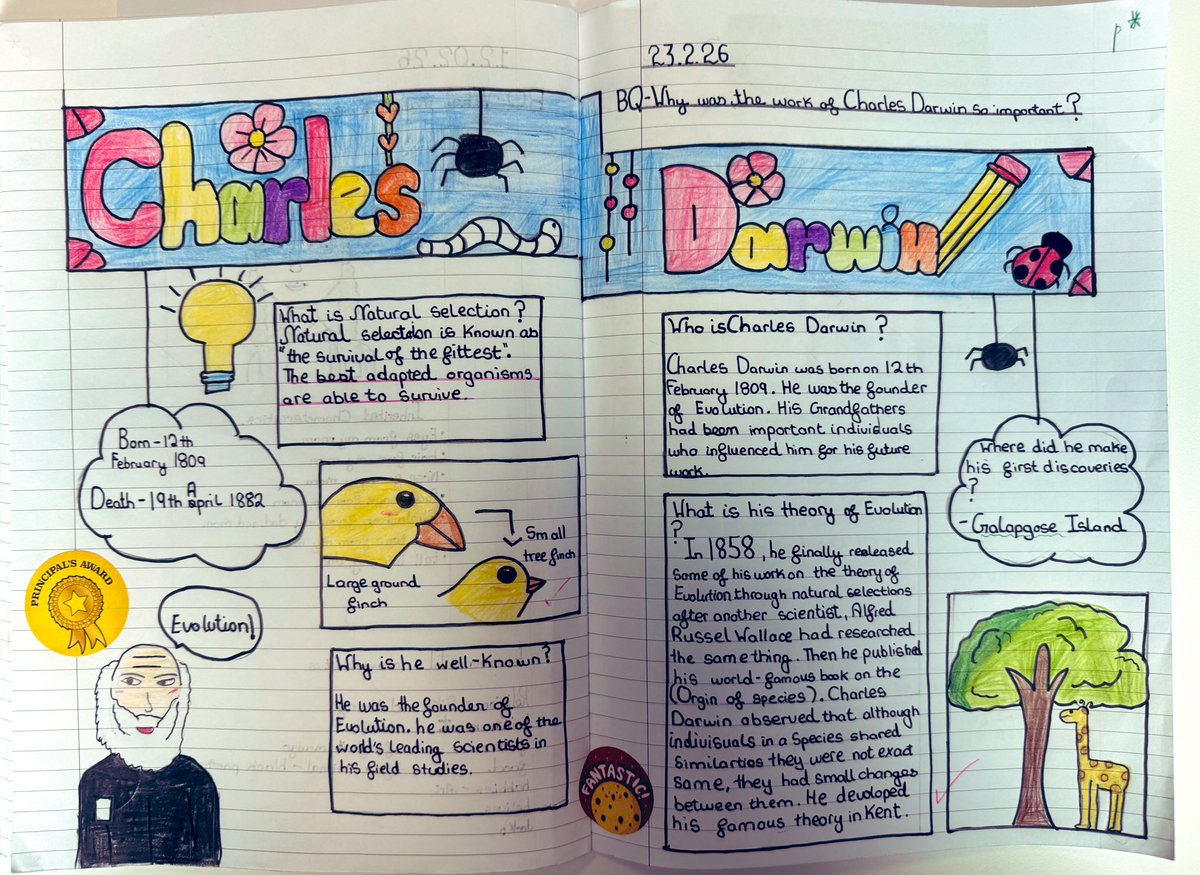 Charles
What is Natural selection?
Natural selectdon is known as
"the survival of the fittest".
The best adapted organisms
are able to survive.
Born - 12th
February 1809
Death - 19th April 1882
Large ground
finch
Small
tree finch
PRINCIPAL'S AWARD
Evolution!
Why is he well-known?
He was the founder of
Evolution. he was one of the
world's leading scientists in
his field studies.
p*
23.2.26
BQ-Why was the work of Charles Darwin so important?
Darwin
Who is Charles Darwin?
Charles Darwin was born on 12th
February 1809. He was the founder
of Evolution. His Grandfathers
had been important individuals
who influenced him for his future
work.
Where did he make
his first discoveries
?
- Galapgose Island
What is his theory of Evolution
?
In 1858, he finally reeleased
some of his work on the theory of
Evolution through natural selections
after another scientist, Alfred
Russel Wallace had researched
the same thing. Then he published
his world-famous book on the
(Orgin of species). Charles
Darwin observed that although
indivisuals in a species shared
similarties they were not exact
same, they had small changes
between them. He devoloped
his famous theory in Kent.
FANTASTIC!